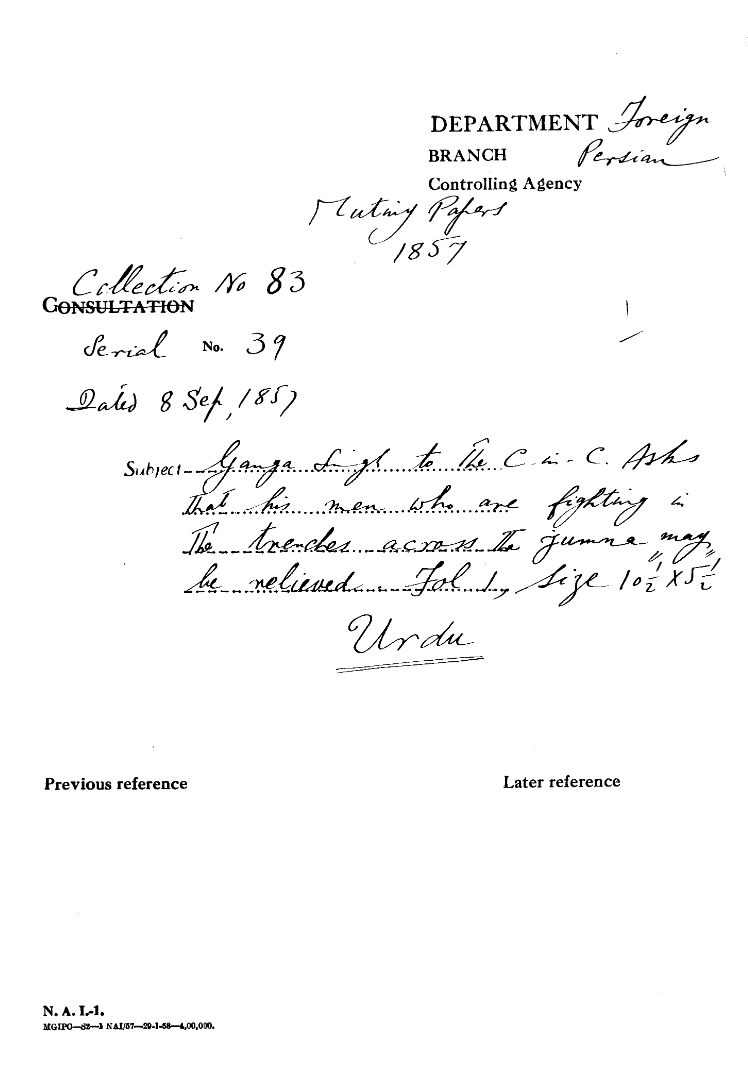 DEPARTMENT Foreign
BRANCH Persian
Controlling Agency
Mutiny Papers
1857
Collection No 83
CONSULTATION
Serial No. 39
Dated 8 Sep, 1857
Subject - Ganga Singh to the C-in-C. Asks
that his men who are fighting in
the trenches across the Jumna may
be relieved. Fol 1, Size 10½" X 5½"
Urdu
Previous reference Later reference
N. A. I.-1.
MGIPC—S3—1 NAI/57—29-1-58—4,00,000.